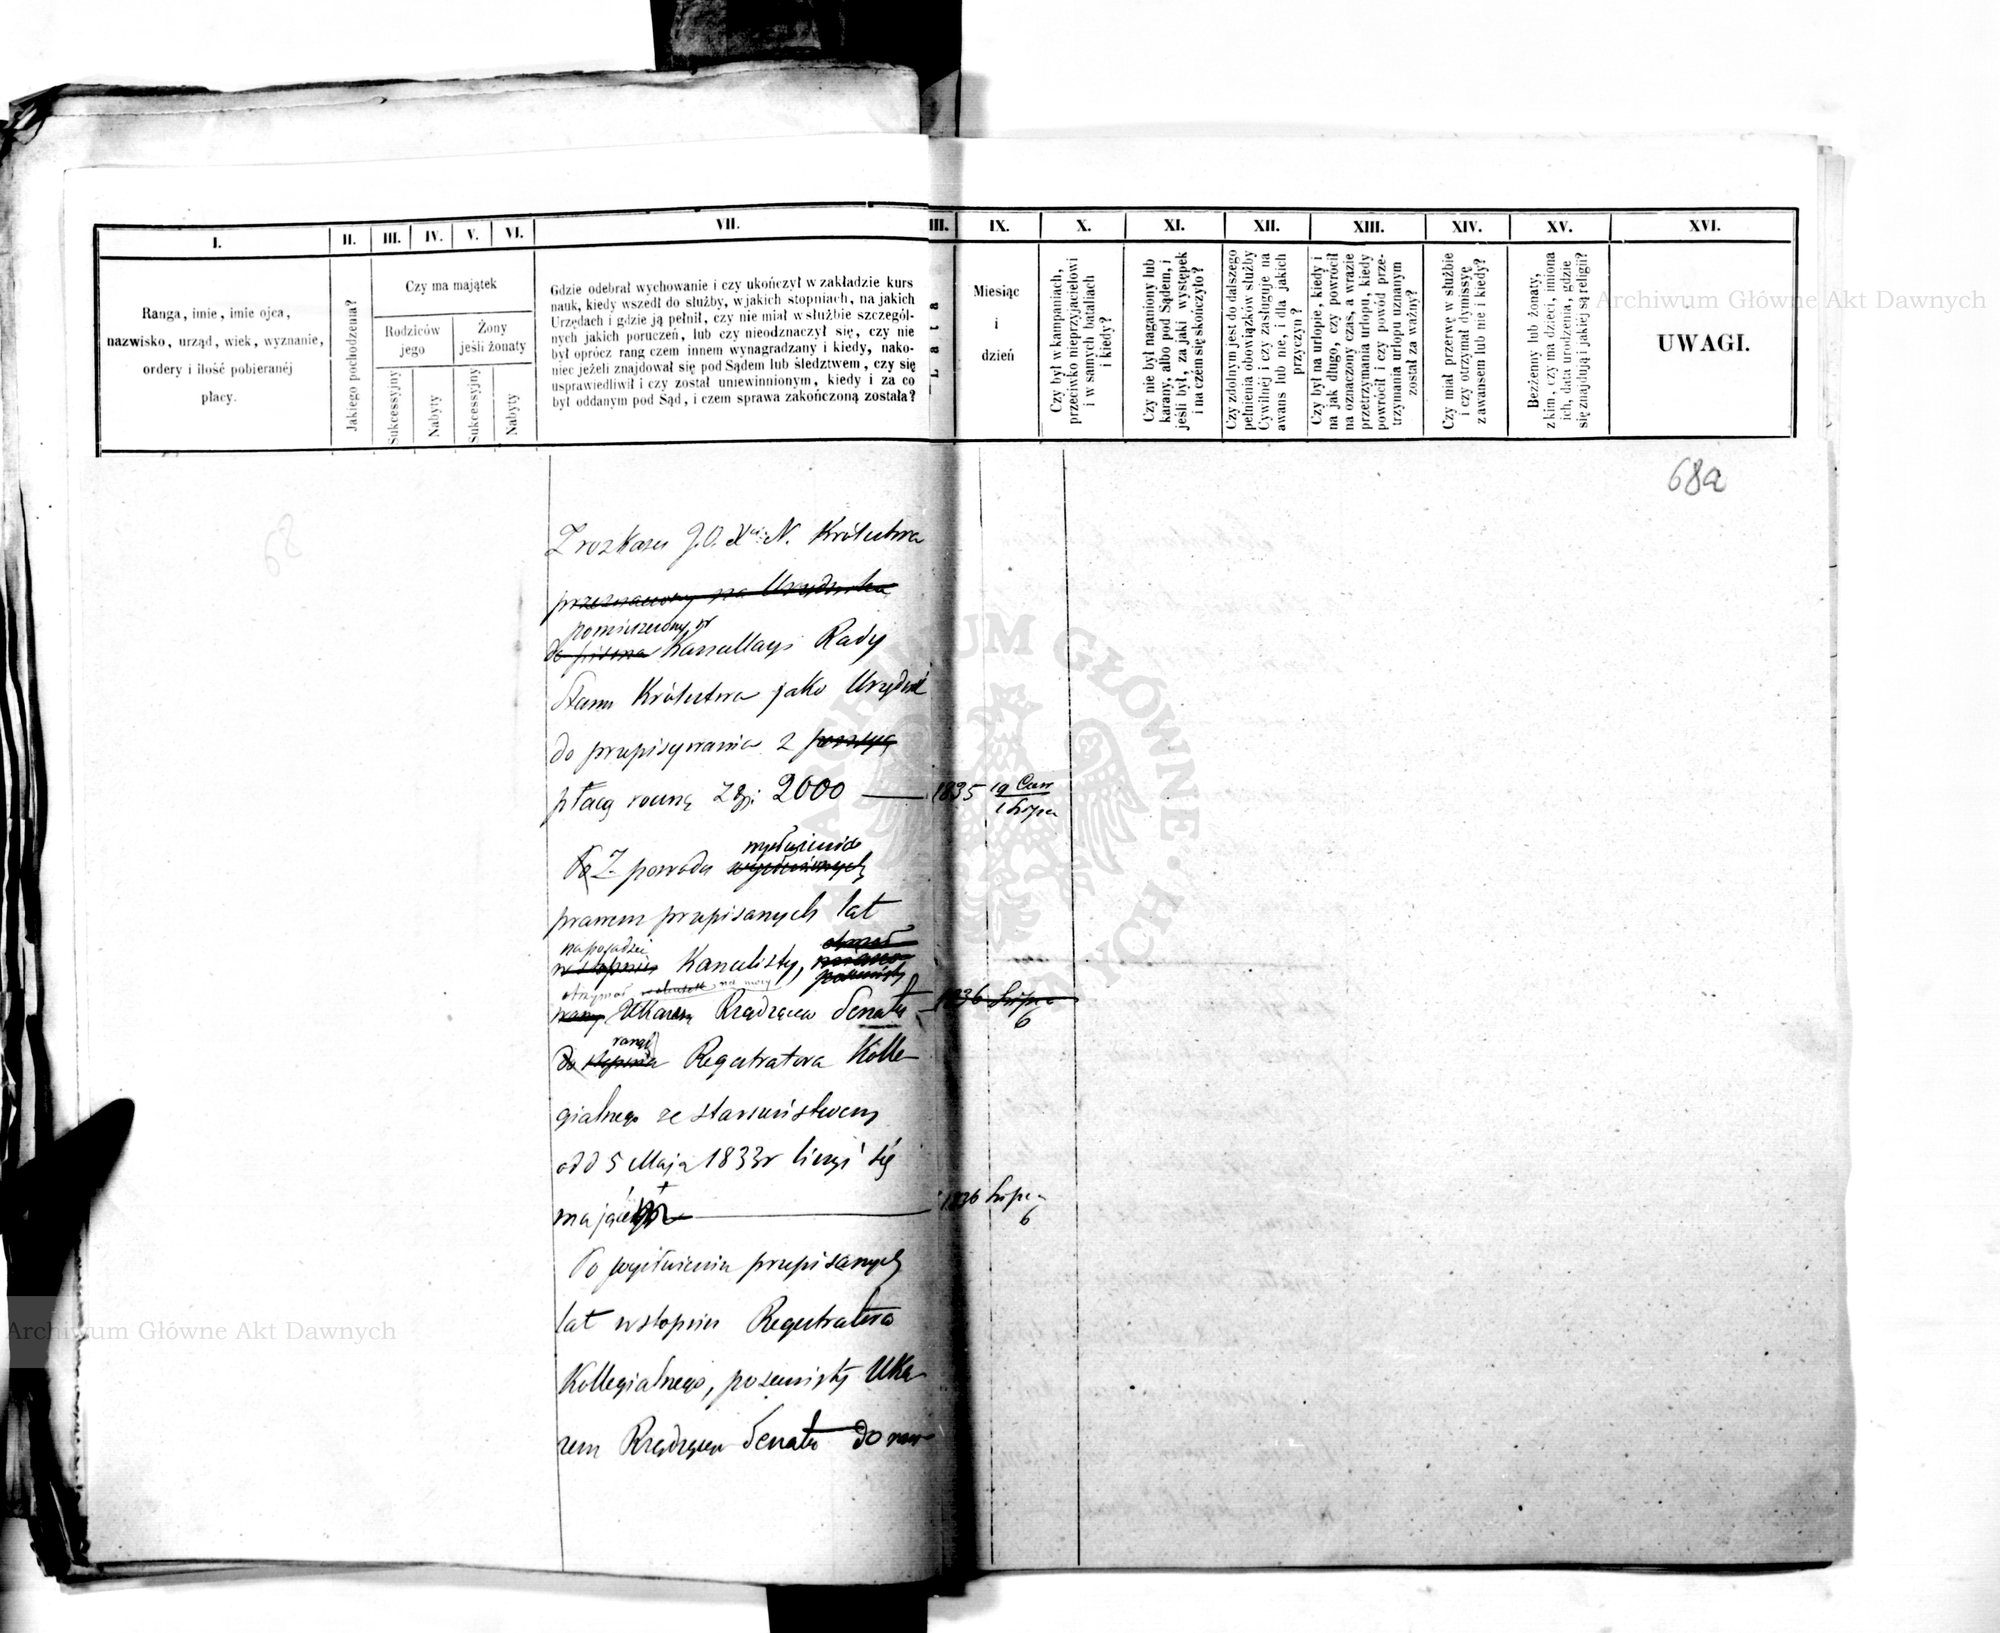 Archiwum Główne Akt Dawnych
I.
II.
III.
IV.
V.
VI.
VII.
III.
IX.
X.
XI.
XII.
XIII.
XIV.
XV.
XVI.
Ranga, imie, imie ojca,
nazwisko, urząd, wiek, wyznanie,
ordery i ilość pobieranéj
płacy.
Jakiego pochodzenia?
Czy ma majątek
Rodziców
jego
Żony
jeśli żonaty
Sukcessyjny
Nabyty
Sukcessyjny
Nabyty
Gdzie odebrał wychowanie i czy ukończył w zakładzie kurs
nauk, kiedy wszedł do służby, w jakich stopniach, na jakich
Urzędach i gdzie ją pełnił, czy nie miał w służbie szczegól-
nych jakich poruczeń, lub czy nieodznaczył się, czy nie
był oprócz rang czem innem wynagradzany i kiedy, nako-
niec jeżeli znajdował się pod Sądem lub śledztwem, czy się
usprawiedliwił i czy został uniewinnionym, kiedy i za co
był oddanym pod Sąd, i czem sprawa zakończoną została?
Lata
Miesiąc
i
dzień
Czy był w kampaniach,
przeciwko nieprzyjacielowi
i w samych bataliach
i kiedy?
Czy nie był naganiony lub
karany, albo pod Sądem, i
jeśli był, za jaki występek
i na czém się skończyło?
Czy zdolnym jest do dalszego
pełnienia obowiązków służby
Cywilnéj i czy zasługuje na
awans lub nie, i dla jakich
przyczyn?
Czy był na urlopie, kiedy i
na jak długo, czy powrócił
na oznaczony czas, a w razie
przetrzymania urlopu, kiedy
powrócił i czy powód prze-
trzymania urlopu uznanym
został za ważny?
Czy miał przerwę w służbie
i czy otrzymał dymissyę
z awansem lub nie i kiedy?
Bezżenny lub żonaty,
z kim, czy ma dzieci, imiona
ich, data urodzenia, gdzie
się znajdują i jakiéj są religii?
UWAGI.
68a
68
Z rozkazu J.O. Xcia N. Królestwa
przeznaczony na Urzędnika
pomieszczony w
do pisma Kancellaryi Rady
Stanu Królestwa jako Urzędnik
do przepisywania z pensyą
płacą roczną Złp: 2000 — 1835 19 Czer
1 Lipca
Po Z powodu wysłużenia
prawem przepisanych lat
na posadzie
w stopniu Kancelisty,
otrzymał
Ukazem Rządzącego Senatu 1836 Lipca
6
rangę
do stopnia Regestratora Kolle-
gialnego ze starszeństwem
od d 5 Maja 1833r liczyć się
mające — 1836 Lipca
6
Po wysłużeniu przepisanych
lat w stopniu Regestratora
Kollegialnego, posunięty Uka-
zem Rządzącego Senatu do ran-
ARCHIWUM GŁÓWNE AKT DAWNYCH
Archiwum Główne Akt Dawnych